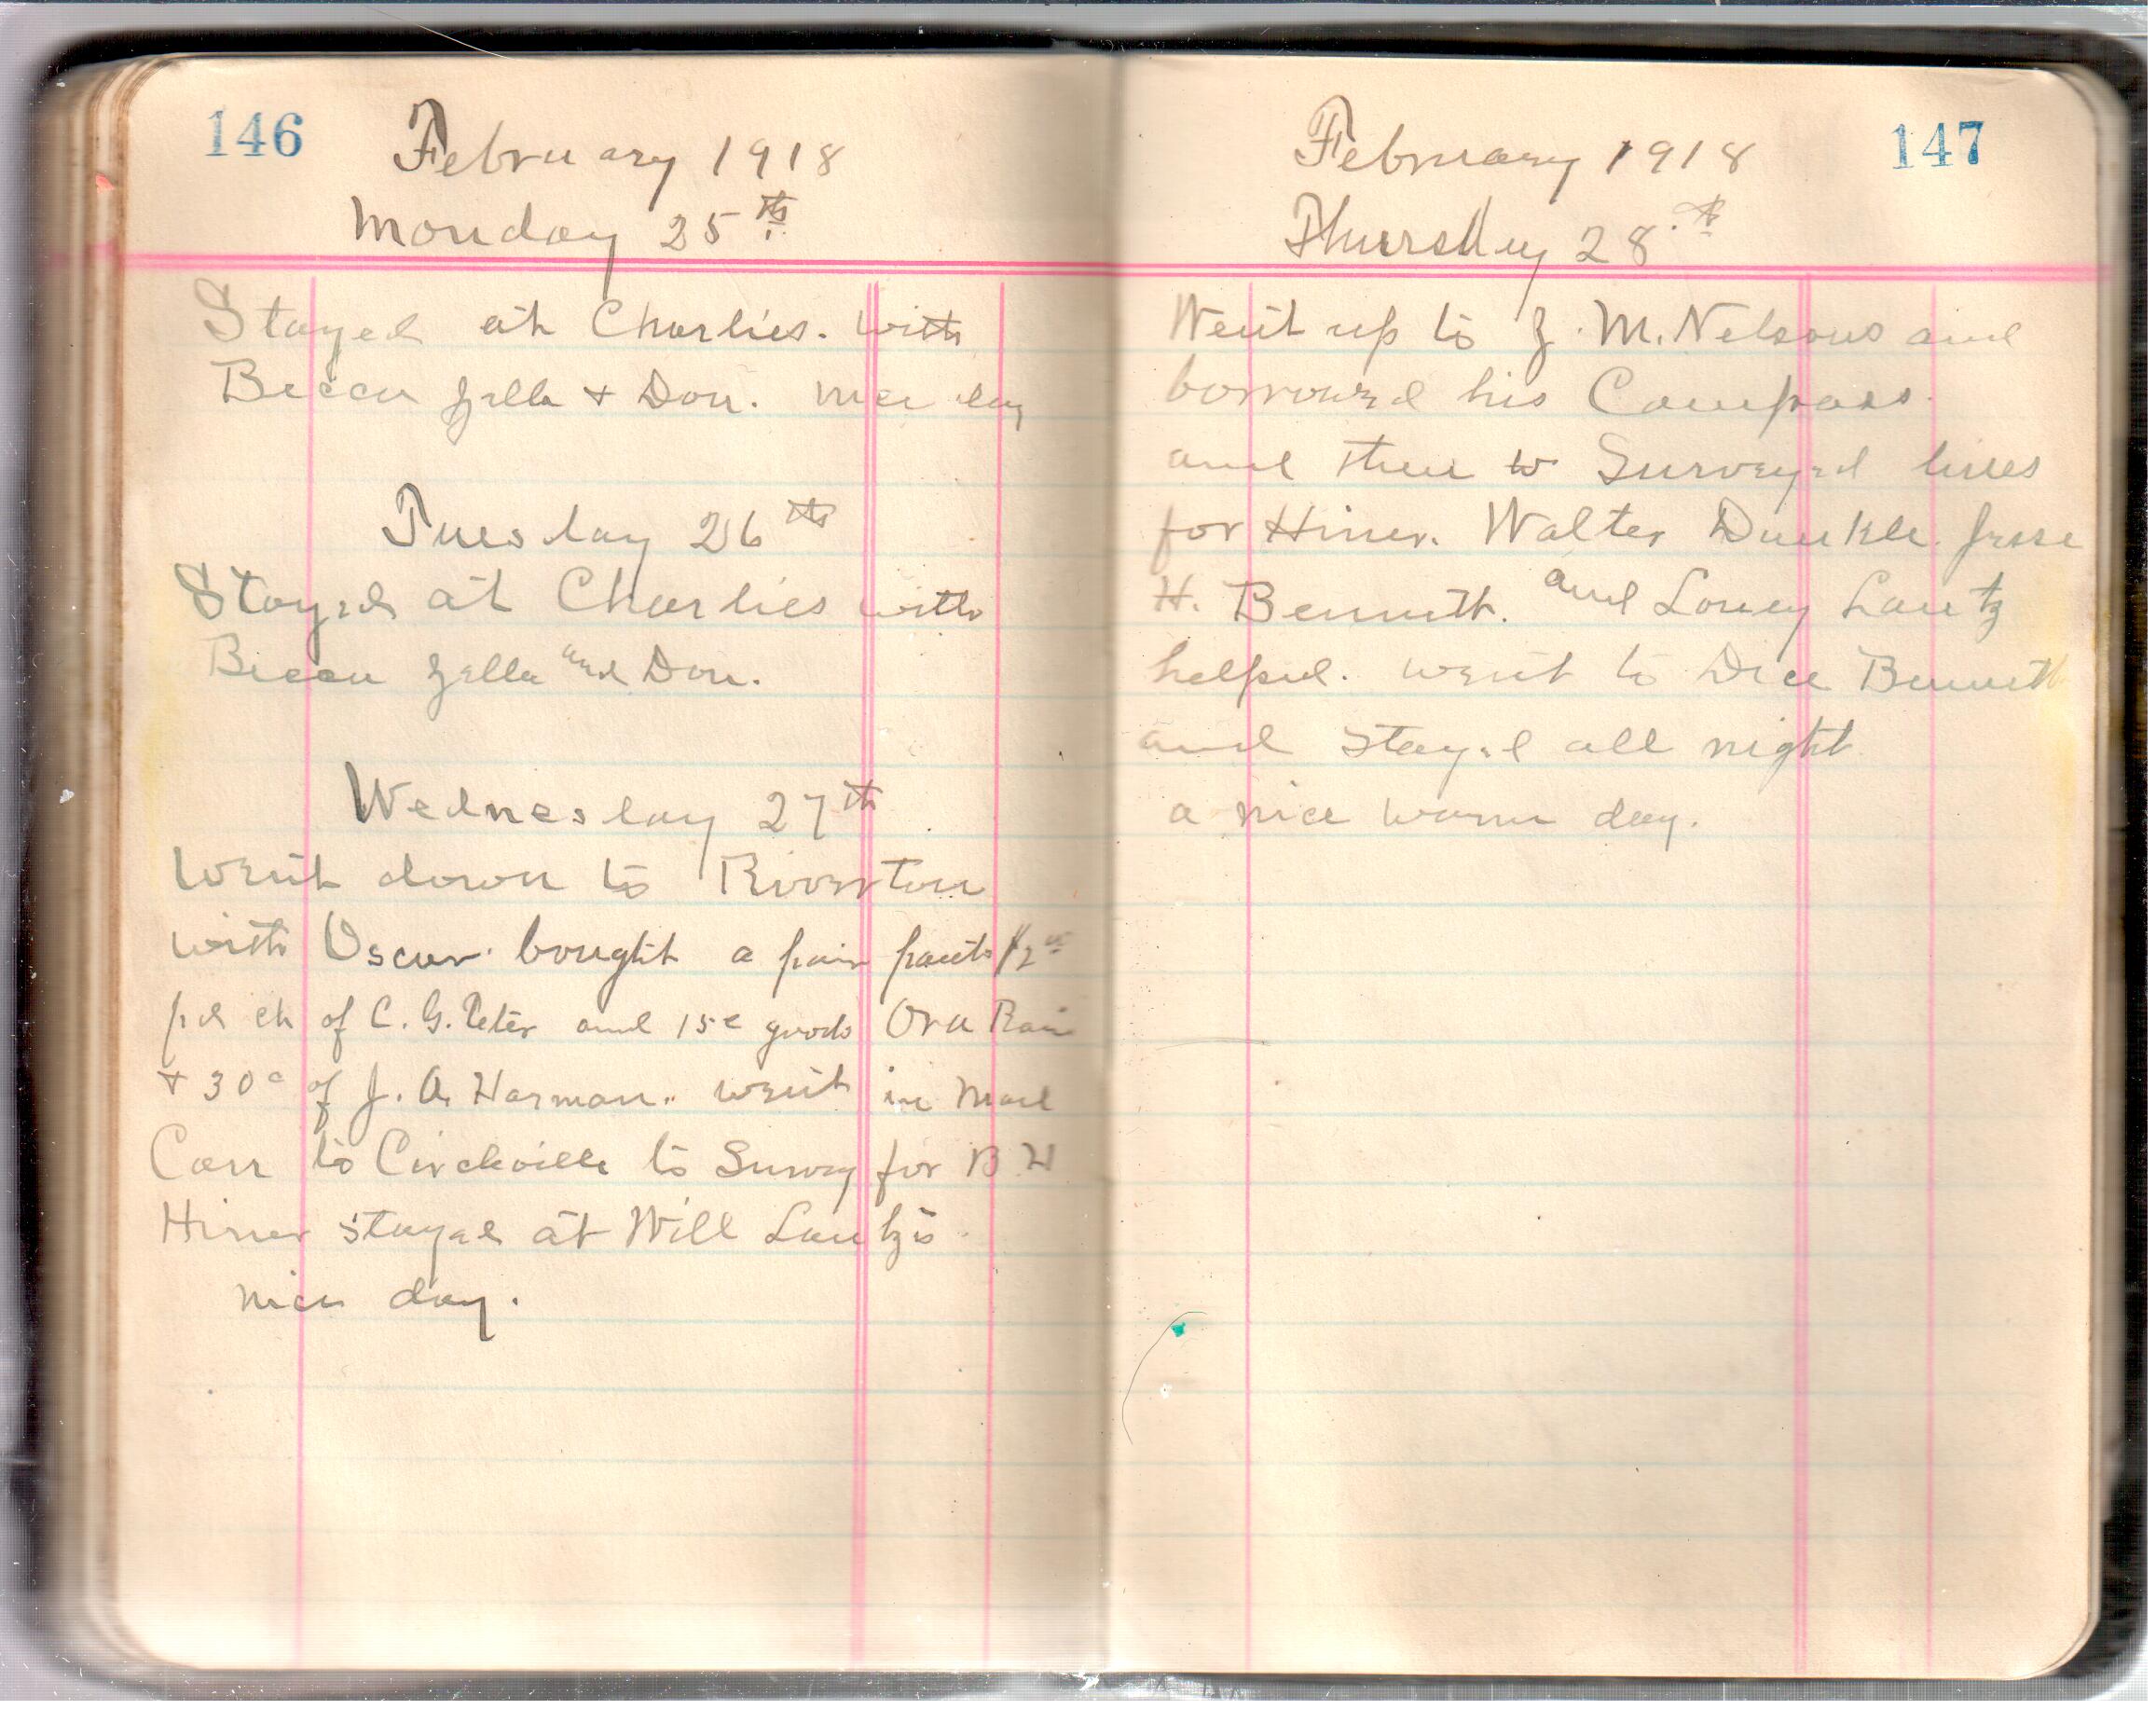 146
February 1918
Monday 25th
Stayed at Charlies. with
Becca Zella + Don. nice day
Tuesday 26th
Stayed at Charlies with
Becca Zella and Don.
Wednesday 27th
Went down to Riverton
with Oscar. bought a pair pants
pd ch of C. G. Peter and 15c goods Ora
+ 30c of J. A. Harman. went in Mail
Carr to Circleville to Survey for B H
Hiner stayed at Will Lantz's
nice day.
147
February 1918
Thursday 28th
Went up to Z. M. Nelsons and
borrowed his Compass.
and then Surveyed lines
for Hiner. Walter Dunkle Jesse
H. Bennett. and Loney Lantz
helped. went to Dice Bennett
and Stayed all night
a nice warm day.